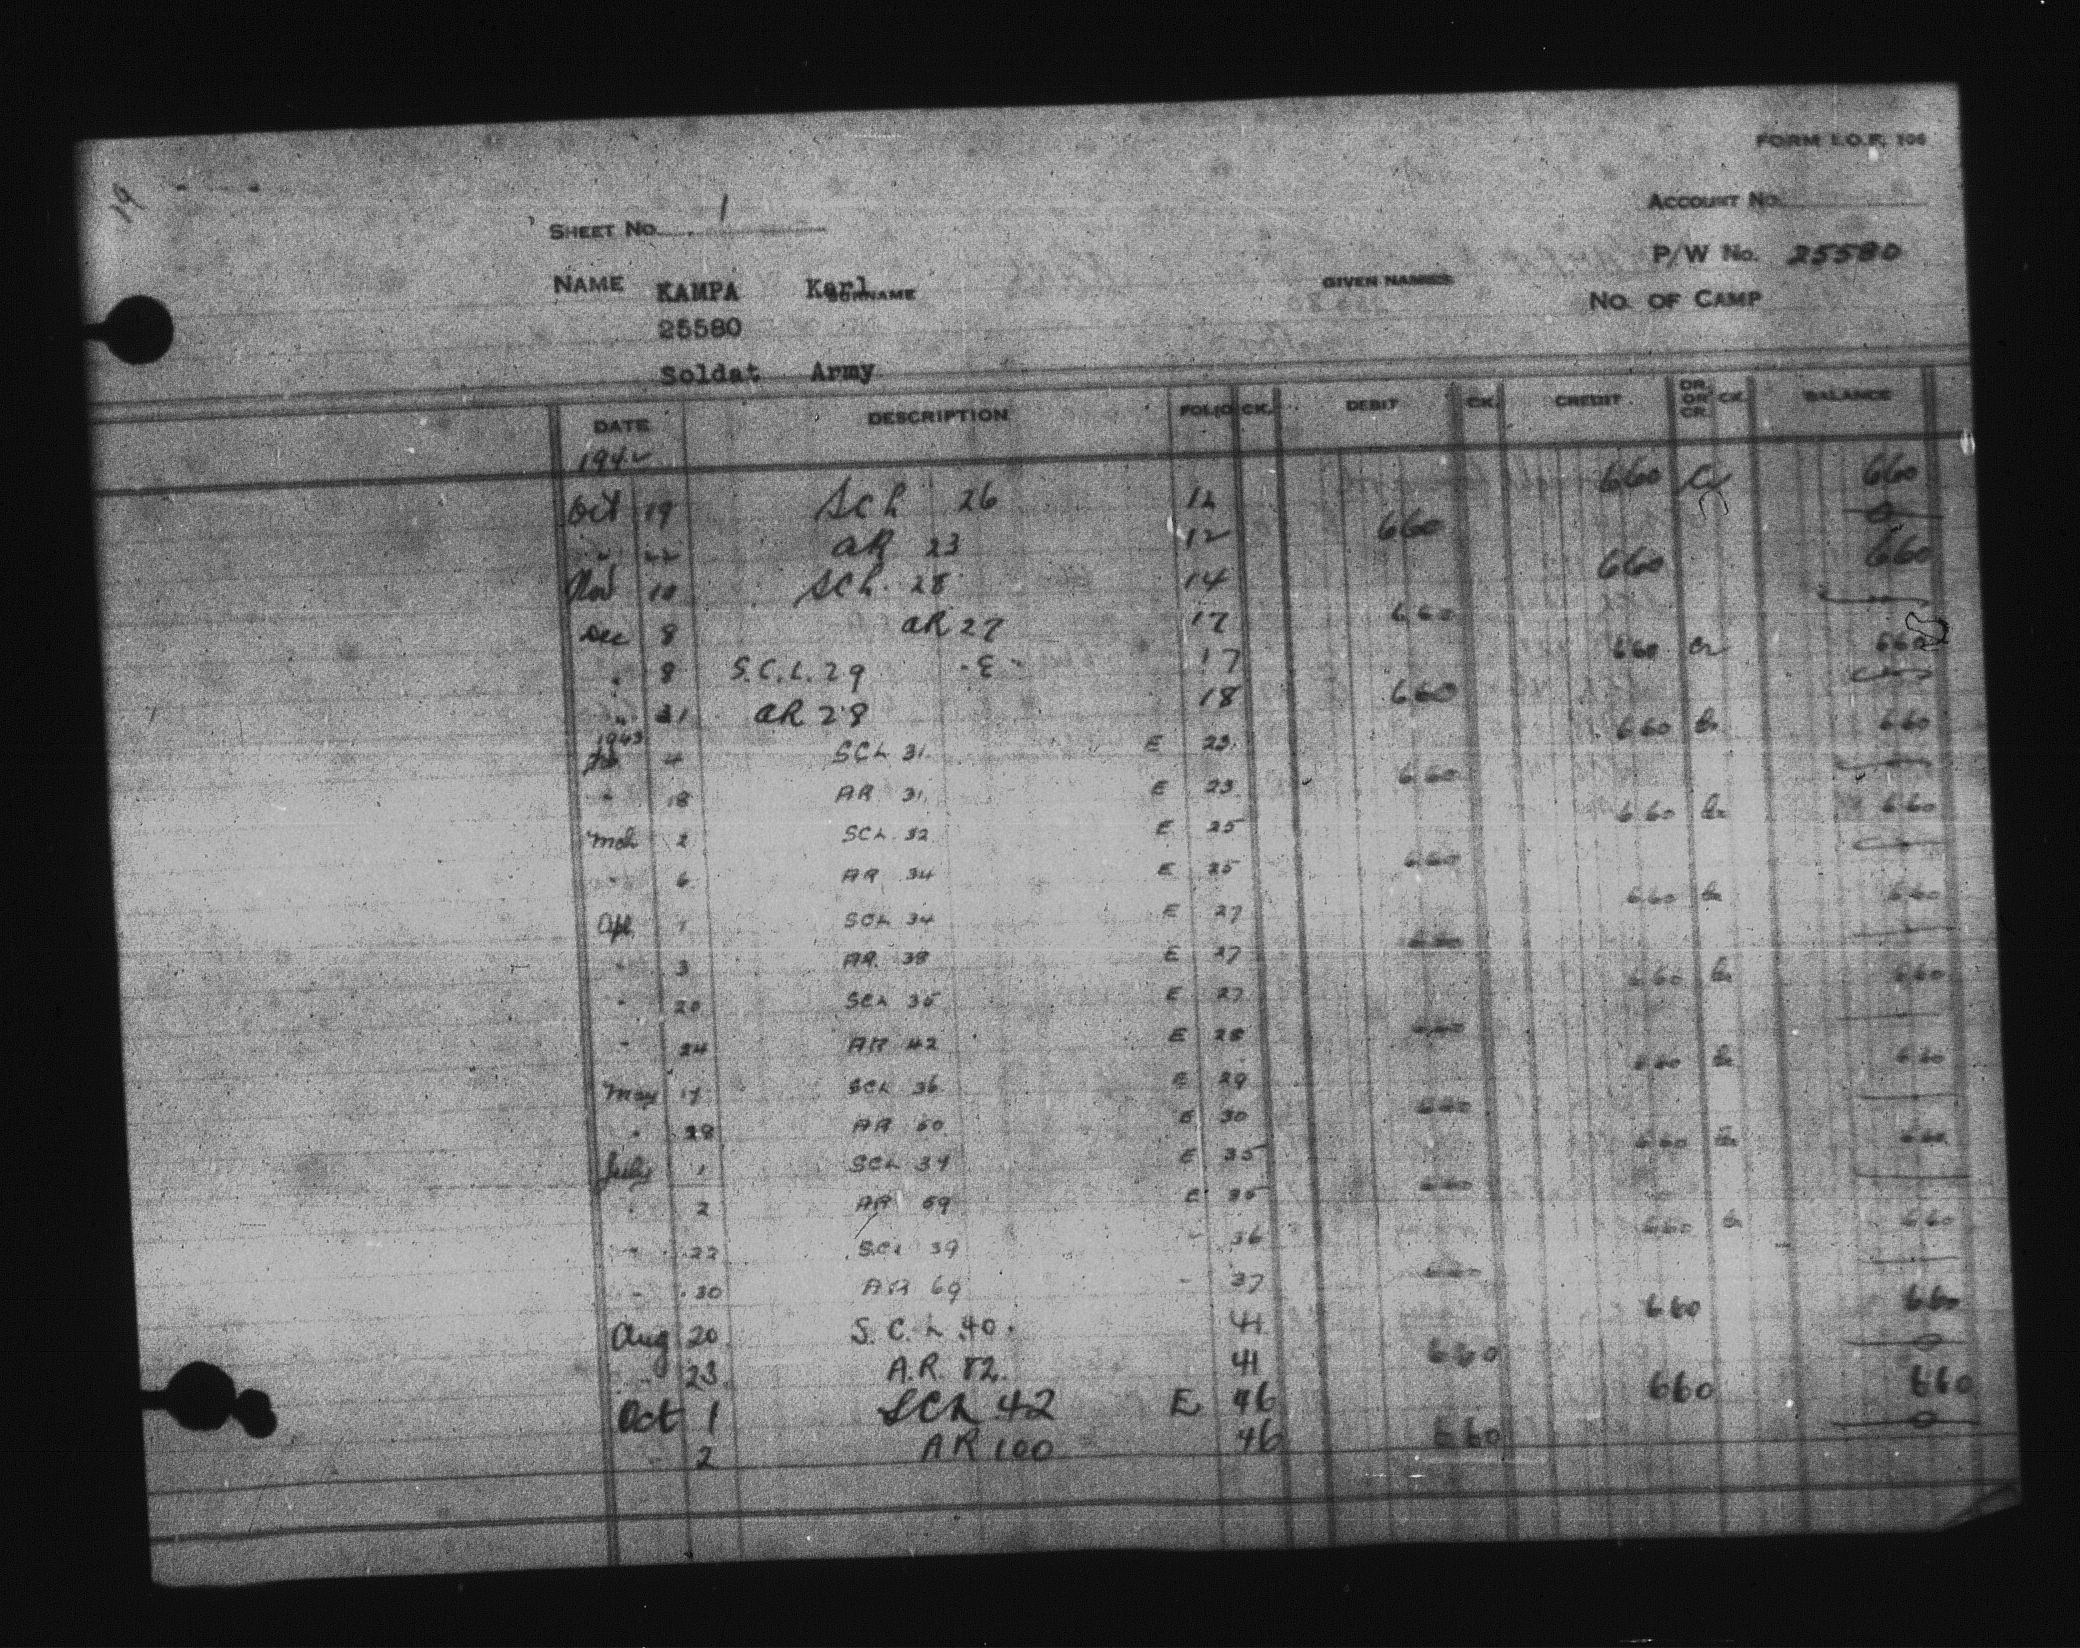 19
FORM I.O.F. 106
SHEET No. 1
ACCOUNT No.
P/W No. 25580
NAME KAMPA Karl SURNAME GIVEN NAMES
NO. OF CAMP
25580
Soldat Army
DATE DESCRIPTION FOLIO CK. DEBIT CK. CREDIT DR. OR CR. CK. BALANCE
1942
Oct 19 SCL 26 12 660 Cr 660
" 22 AR 23 12 660 0
Nov 10 SCL. 28 14 660 660
Dec 8 AR 27 17 660
" 8 S.C.L. 29 - E - 17 660 Cr 660
" 31 AR 28 18 660
1943
Feb 4 SCL 31 E 23 660 Cr 660
" 18 AR 31 E 23 660
Mch 2 SCL 32 E 25 660 Cr 660
" 6 AR 34 E 25 660
Apl 1 SCL 34 E 27 660 Cr 660
" 3 AR 38 E 27 660
" 20 SCL 35 E 27 660 Cr 660
" 24 AR 42 E 28 660
May 17 SCL 36 E 29 660 Cr 660
" 28 AR 50 E 30 660
July 1 SCL 37 E 35 660 Cr 660
" 2 AR 59 E 35 660
" 22 SCL 39 - 36 660 Cr 660
" 30 AR 69 - 37 660
Aug 20 S.C.L 40. 41 660 660
" 23 A.R. 82. 41 660 0
Oct 1 SCL 42 E 46 660 660
" 2 AR 100 46 660 0